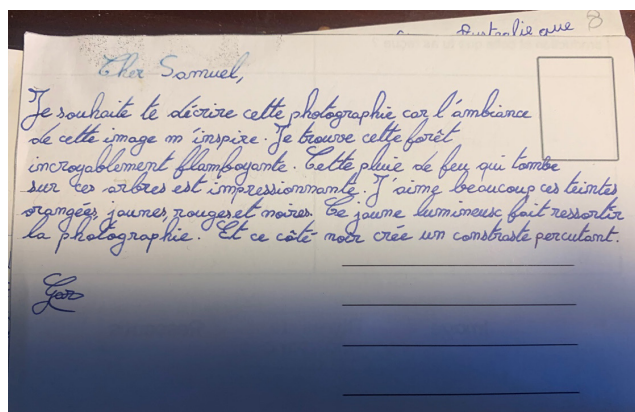 Australie que 8
Cher Samuel,
Je souhaite te décrire cette photographie car l'ambiance
de cette image m'inspire. Je trouve cette forêt
incroyablement flamboyante. Cette pluie de feu qui tombe
sur ces arbres est impressionnante. J'aime beaucoup ces teintes
orangées, jaunes, rouges et noires. Ce jaune lumineux fait ressortir
la photographie. Et ce côté noir crée un constraste percutant.